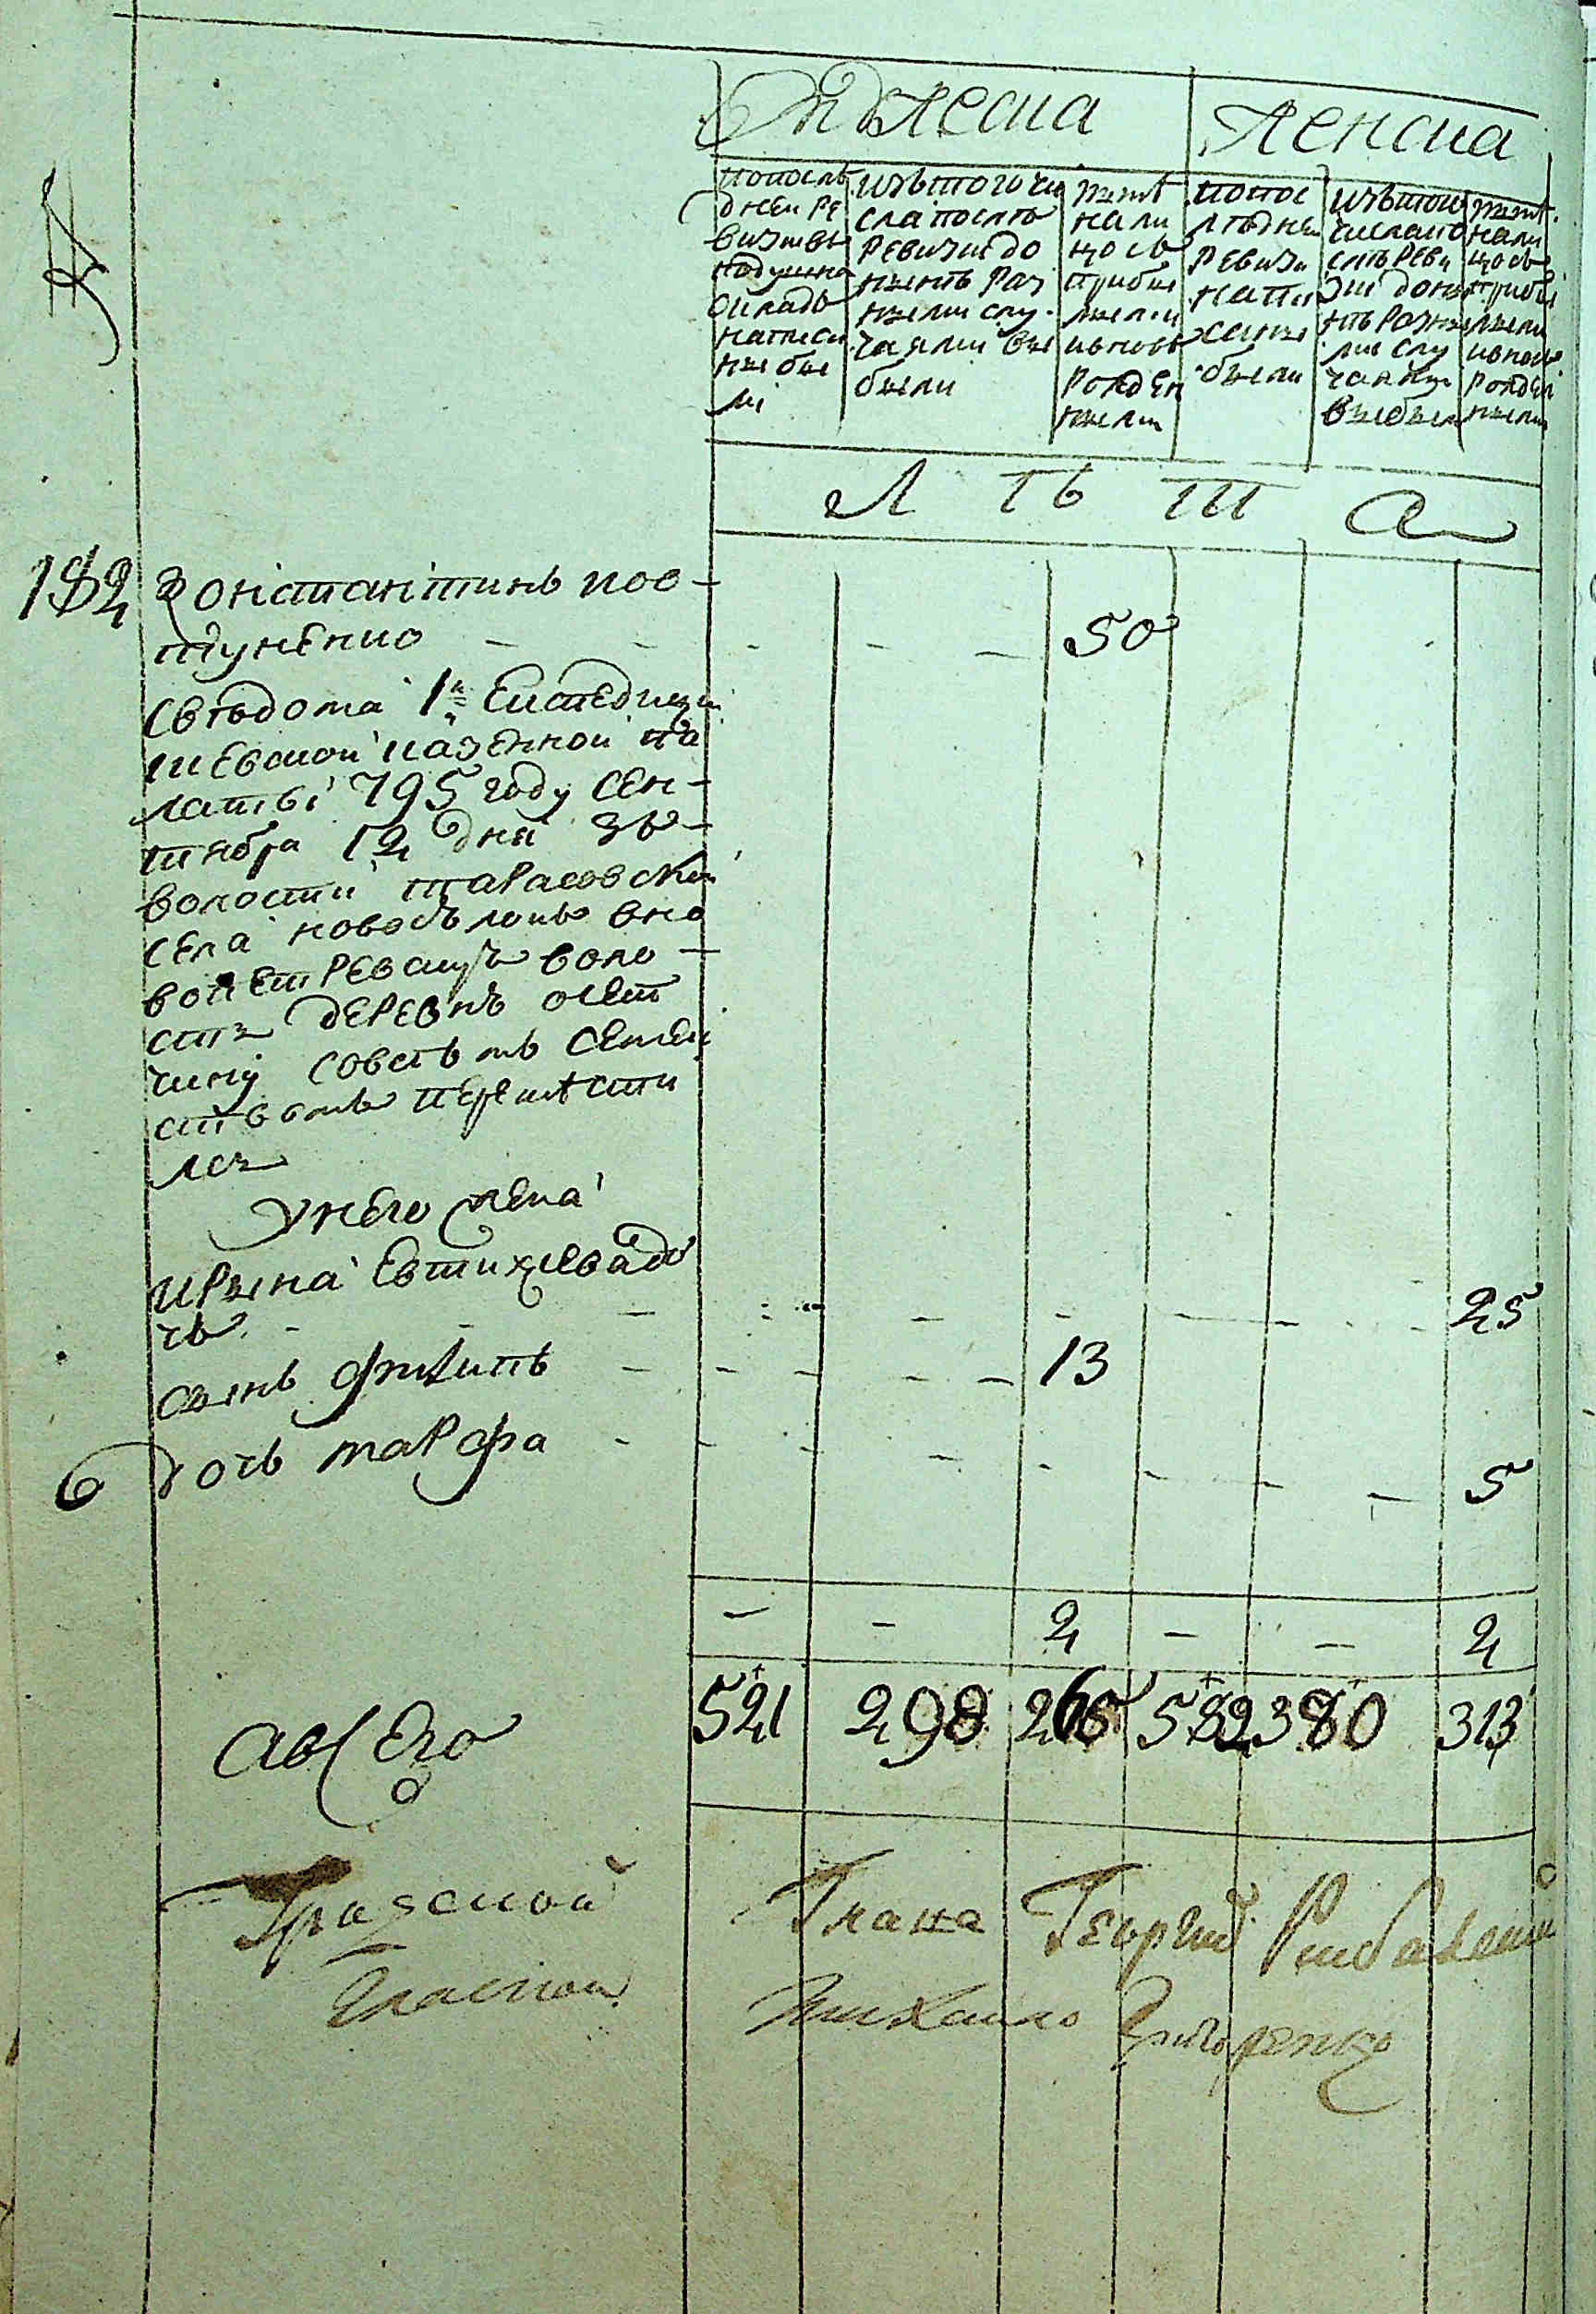 мужеска женска
попослѣ
дней ре
визіивъ
подушно
окладъ
написа
ные бы
ли
изътогочи
слапослѣ
ревизіидо
нынѣ раз
ными слу
чаями вы
были
нынѣ
нали
цось
прибы
лыми
ивновь
рожден
ными
попос
лѣдней
ревизи
напи
саные
были
изътого
числапо
слѣ реви
зіи донын
нѣ разны
ми слу
чаями
выбыли
нынѣ
нали
цось
прибы
лыми
ивновь
рожден
ными
Л ѣ т а
182 Константинъ ков
туненко - - - - - 50
сведома Екатедиции
киевской казенной па
латы 795 году сен
тября 12 дня зъ
волости тарасовской
села новоселокъ вно
воп етревскую воло
сть деревнѣ
чину совсѣмъ семей
ствомъ перемѣсти
лся
унего жена
ирына Евтихиевадо
чь - - - - - 25
сынъ филипъ - - - - 13
6 дочь марфа - - - - - 5
- - 2 - - 2
авсего 521 298 265 582 380 313
Градской Глава Георгий Рибальский
Гласной Михайло Григоренко